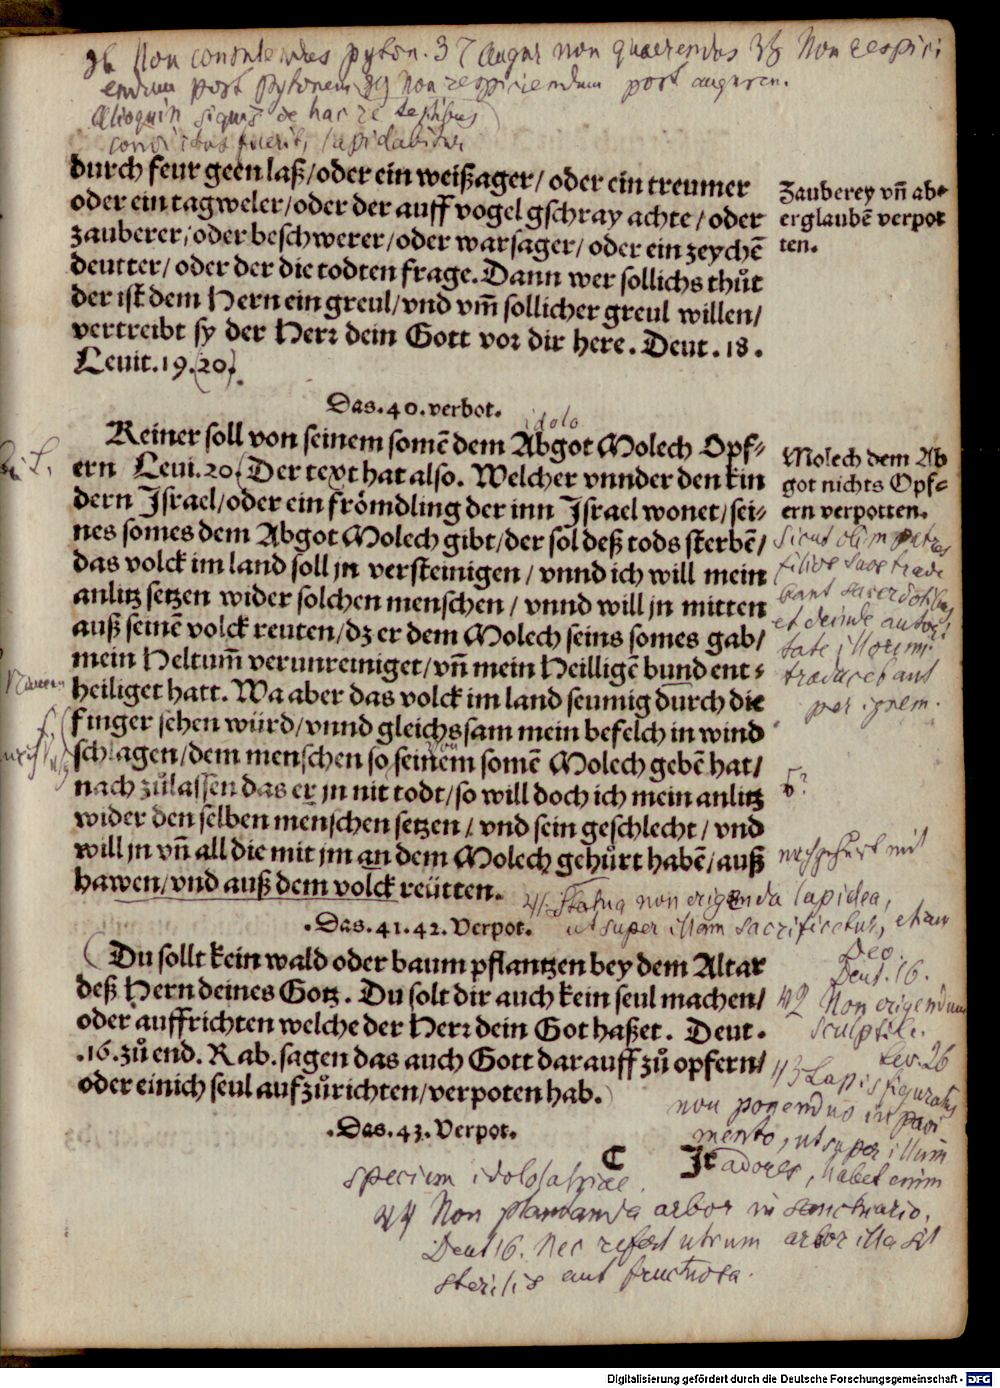 36 Non consulendus pyton. 37 augur non quaerendus 38 Non respici
endum post pytonem 39 Non respiciendum post augurem.
Alioquin siquis de hac re testibus
convictus fuerit, lapidabitur
durch feur geen laß/oder ein weißager/ oder ein treumer
oder ein tagweler/oder der auff vogel gschray achte/oder
zauberer/oder beschwerer/oder warsager/ oder ein zeychē
deutter/ oder der die todten frage. Dann wer sollichs thůt
der ist dem Hern ein greul/vnd vm̄ sollicher greul willen/
vertreibt sy der Herr dein Gott vor dir here. Deut. 18.
Leuit. 19.(20).
Zauberey vn̄ ab⸗
erglaubē verpot
ten.
Das. 40. verbot.
idolo
Keiner soll von seinem somē dem Abgot Molech Opf⸗
ern Leui. 20. Der text hat also. Welcher vnnder den kin
dern Israel/oder ein frömdling der inn Israel wonet/sei⸗
nes somes dem Abgot Molech gibt/der sol deß tods sterbē/
das volck im land soll jn versteinigen/ vnnd ich will mein
anlitz setzen wider solchen menschen/ vnnd will jn mitten
auß seinē volck reuten/dz er dem Molech seins somes gab/
mein Heltum̄ verunreiniget/vn̄ mein Heilligē bund ent⸗
heiliget hatt. Wa aber das volck im land seumig durch die
finger sehen würd/vnnd gleichssam mein befelch in wind
schlagen/dem menschen so seinem somē Molech gebē hat/
nach zůlassen das er jn nit todt/so will doch ich mein anlitz
wider den selben menschen setzen/ vnd sein geschlecht/ vnd
will jn vn̄ all die mit jm an dem Molech gehůrt habē/auß
hawen/vnd auß dem volck reütten.
Molech dem Ab
got nichts Opf⸗
ern verpotten.
Sicut olim patres
filios suos trade
bant sacerdotibus
et deinde autori
tate illorum
traducebant
per ignem.
nachgehurt mit
41 Statua non erigenda lapidea,
ut super illam sacrificetur, etiam
Deo.
Deut. 16.
.Das. 41. 42. Verpot.
Du sollt kein wald oder baum pflantzen bey dem Altar
deß Hern deines Gotz. Du solt dir auch kein seul machen/
oder auffrichten welche der Herr dein Got haßet. Deut.
.16. zů end. Rab. sagen das auch Gott darauff zů opfern/
oder einich seul aufzůrichten/verpoten hab.
42 Non erigendum
sculptile.
Lev. 26
43 Lapis figuratus
non ponendus in pavi
mento, ut super illum
adores, habet enim
.Das. 43. Verpot.
C Jt
speciem idololatriae.
44 Non plantanda arbor in sanctuario.
Deut 16. Nec refert utrum arbor illa sit
sterilis aut fructuosa.
Digitalisierung gefördert durch die Deutsche Forschungsgemeinschaft - DFG